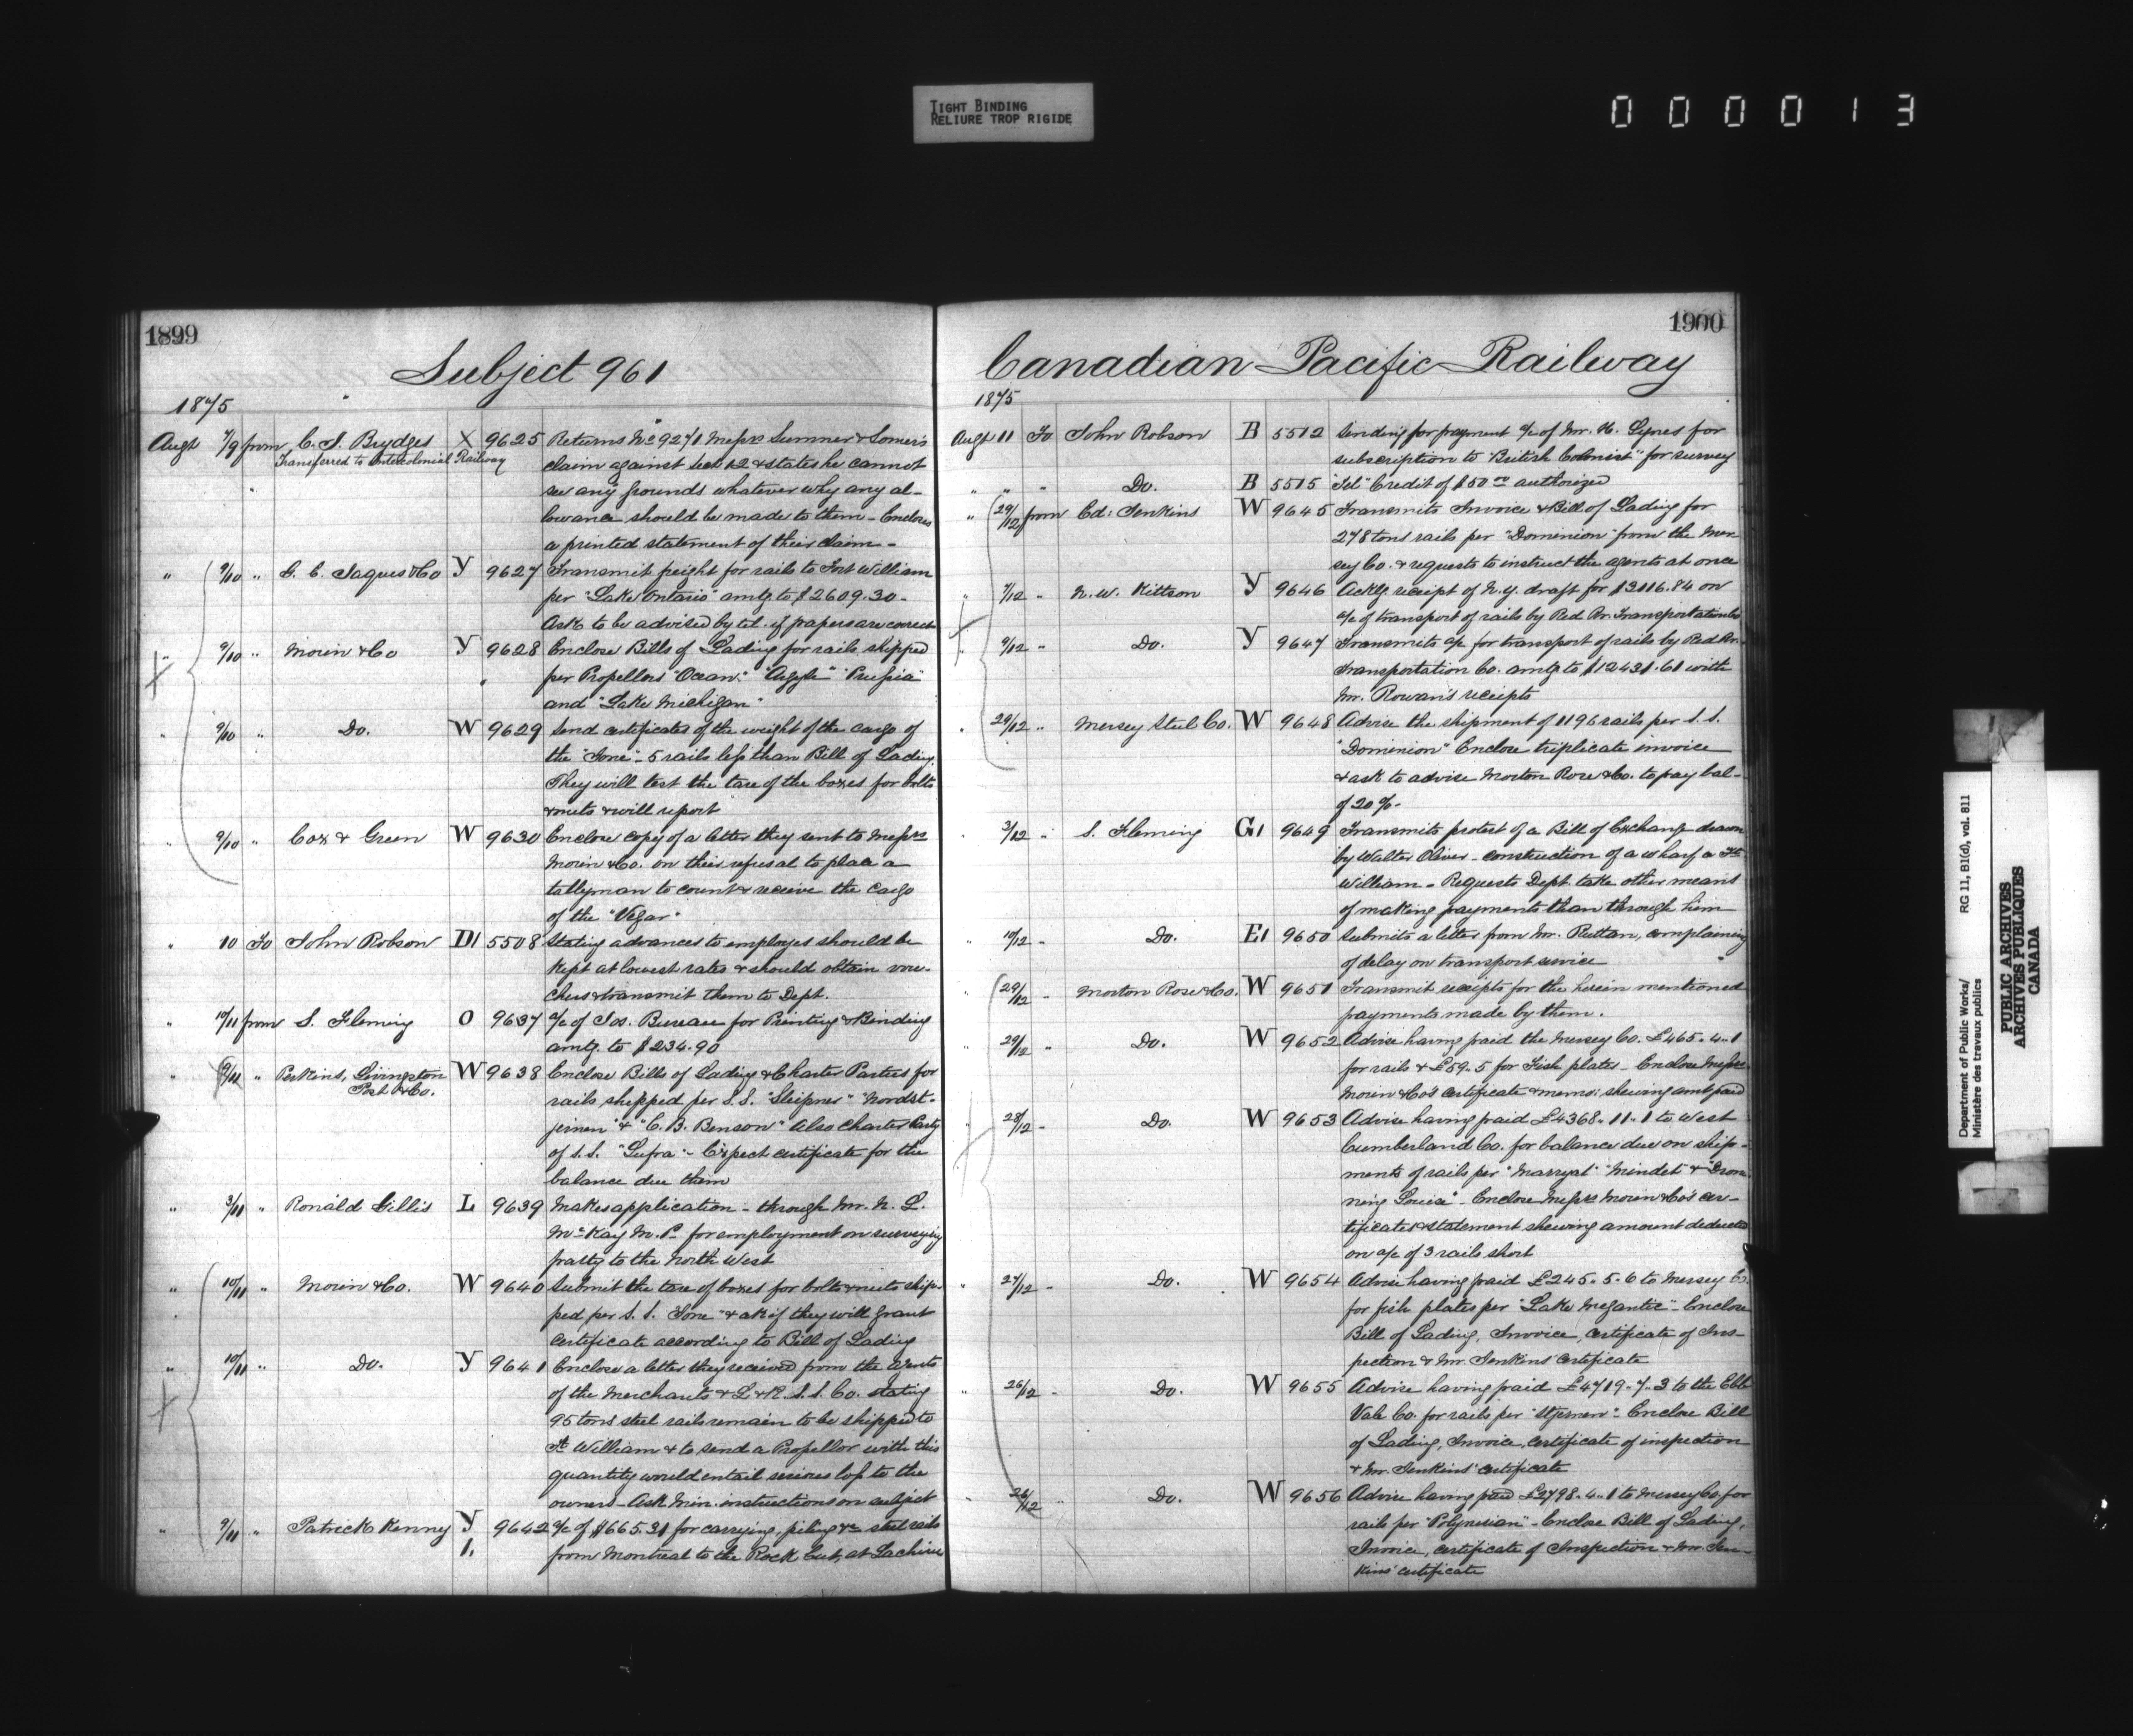 TIGHT BINDING
RELIURE TROP RIGIDE
000013
1899
Subject 961
1875
Augt 7/9 from C. J. Brydges X 9625 Returns No 9271 Messrs Sumner & Somers
Transferred to Intercolonial Railway
claim against Sect 12 & states he cannot
see any grounds whatever why any al-
lowance should be made to them - Encloses
a printed statement of their claim -
" 9/10 " G. E. Jaques & Co Y 9627 Transmit freight for rails to Fort William
per "Lake Ontario" amtg to $2609.30 -
Ask to be advised by tel. if papers are correct
" 9/10 " Morin & Co Y 9628 Enclose Bills of Lading for rails shipped
per Propellors "Ocean" "Argyle" "Prussia"
and "Lake Michigan"
" 9/10 " Do. W 9629 Send certificates of the weight of the cargo of
the "Ione" - 5 rails less than Bill of Lading.
They will test the tare of the boxes for bolts
& nuts & will report
" 9/10 " Cox & Green W 9630 Enclose copy of a letter they sent to Messrs
Morin & Co. on their refusal to place a
tallyman to count & receive the cargo
of the "Vegar"
" 10 To John Robson D1 5508 Stating advances to employes should be
kept at lowest rates & should obtain vou-
chers & transmit them to Dept.
" 10/11 from S. Fleming O 9637 a/c of Jos. Bureau for Printing & Binding
amtg. to $234.90
" 9/11 " Perkins, Livingston W 9638 Enclose Bills of Lading & Charter Parties for
Post & Co.
rails shipped per S.S. "Sleipner" "Nordst-
jernen" & "C. B. Benson" Also Charter Party
of S.S. "Lufra" - Expect certificate for the
balance due them
" 3/11 " Ronald Gillis L 9639 Makes application - through Mr. N. L.
McKay M.P. for employment on surveying
party to the North West
" 10/11 " Morin & Co. W 9640 Submit the tare of boxes for bolts & nuts ship-
ped per S. S. Ione" & ask if they will grant
certificate according to Bill of Lading
" 10/11 " Do. Y 9641 Enclose a letter they received from the Agents
of the Merchants & L & R. S. S. Co. stating
95 tons steel rails remain to be shipped to
Ft William & to send a Propellor with this
quantity would entail serious loss to the
owners - Ask Min. instructions on subject
" 9/11 " Patrick Kenny Y 9642 a/c of $665.31 for carrying, piling &c steel rails
1. from Montreal to the Rock Cut, at Lachine
1900
Canadian Pacific Railway
1875
Augt 11 To John Robson B 5512 Sending for payment a/c of Mr. H. Gynes for
subscription to "British Colonist" for survey
" " " Do. B 5515 Tel" Credit of $50 00 authorized
" 29/12 from Ed: Jenkins W 9645 Transmits Invoice & Bill of Lading for
278 tons rails per "Dominion" from the Mer-
sey Co. & requests to instruct the agents at once
" 7/12 " N. W. Kittson Y 9646 Ackg. receipt of N.Y. draft for $3116.84 on
a/c of transport of rails by Red Rr. Transportation Co
" 9/12 " Do. Y 9647 Transmits a/c for transport of rails by Red Rr.
Transportation Co. amtg to $12431.61 with
Mr. Rowan's receipts
" 29/12 " Mersey Steel Co. W 9648 Advise the shipment of 1196 rails per S. S.
"Dominion" Enclose triplicate invoice
& ask to advise Morton Rose & Co. to pay bal-
of 20%-
" 3/12 " S. Fleming G1 9649 Transmits protest of a Bill of Exchange drawn
by Walter Oliver - construction of a wharf a Ft
William - Requests Dept. take other means
of making payments than through him
" 10/12 " Do. E1 9650 Submits a letter from Mr. Ruttan, complaining
of delay on transport service
" 29/12 - Morton Rose & Co. W 9651 Transmit receipts for the herein mentioned
payments made by them.
" 29/12 " Do. W 9652 Advise having paid the Mersey Co. £465. 4. 1
for rails & £59. 5 for Fish plates - Enclose Messrs.
Morin & Co's certificate & memo: shewing amt paid
" 28/12 - Do. W 9653 Advise having paid £4368. 11. 1 to West
Cumberland Co. for balance due on ship-
ments of rails per "Marryat" "Mindet" & "Dron-
ning Louise" - Enclose Messrs Morin & Co's cer-
tificates & statement shewing amount deducted
on a/c of 3 rails short
" 27/12 - Do. W 9654 Advise having paid £245. 5. 6 to Mersey Co.
for fish plates per "Lake Megantic" - Enclose
Bill of Lading, Invoice, certificate of Ins-
pection & Mr. Jenkins' certificate
" 26/12 - Do. W 9655 Advise having paid £4719. 7. 3 to the Ebb
Vale Co. for rails per "Stjernen" - Enclose Bill
of Lading, Invoice, certificate of inspection
& Mr. Jenkins' certificate
" 26/12 " Do. W 9656 Advise having paid £2798. 4. 1 to Mersey Co. for
rails per "Polynesian" - Enclose Bill of Lading,
Invoice, certificate of Inspection & Mr. Jen-
kins' certificate
Department of Public Works/ RG 11, B1(d), vol. 811
Ministère des travaux publics
PUBLIC ARCHIVES
ARCHIVES PUBLIQUES
CANADA